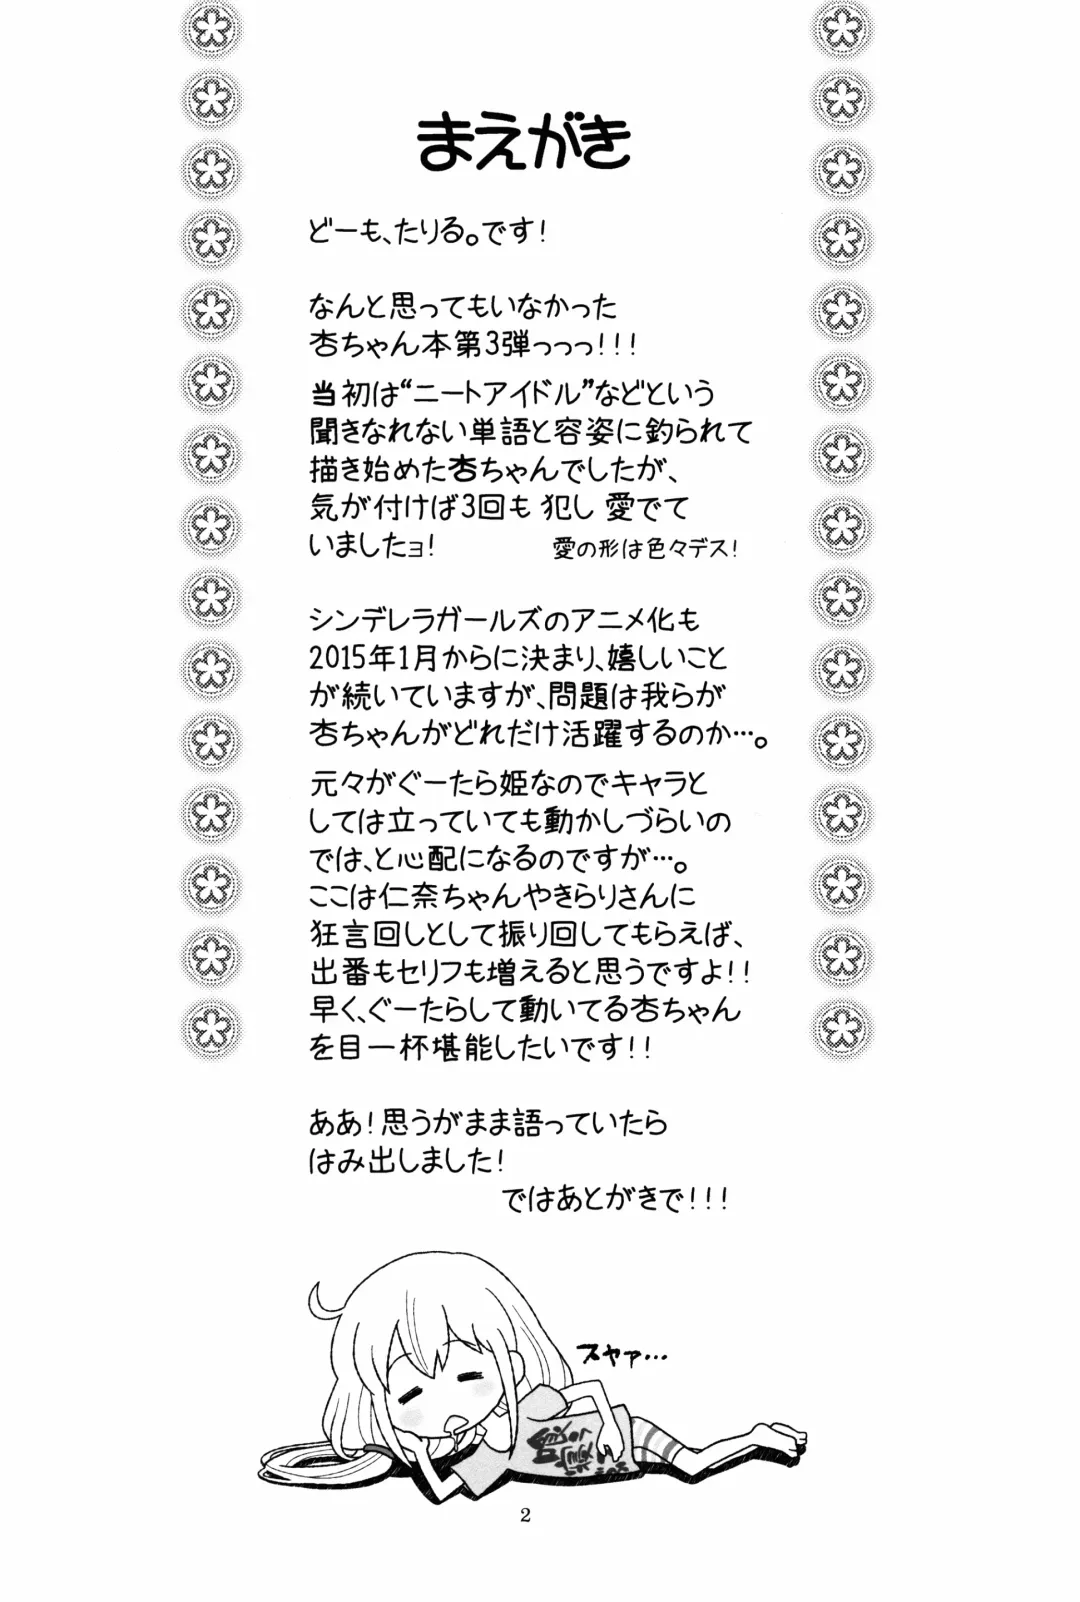 まえがき
どーも、たりる。です!
なんと思ってもいなかった
杏ちゃん本第3弾っっっ!!!
当初は“ニートアイドル”などという
聞きなれない単語と容姿に釣られて
描き始めた杏ちゃんでしたが、
気が付けば3回も 犯し 愛でて
いましたョ!
愛の形は色々デス!
シンデレラガールズのアニメ化も
2015年1月からに決まり、嬉しいこと
が続いていますが、問題は我らが
杏ちゃんがどれだけ活躍するのか…。
元々がぐーたら姫なのでキャラと
しては立っていても動かしづらいの
では、と心配になるのですが…。
ここは仁奈ちゃんやきらりさんに
狂言回しとして振り回してもらえば、
出番もセリフも増えると思うですよ!!
早く、ぐーたらして動いてる杏ちゃん
を目一杯堪能したいです!!
ああ!思うがまま語っていたら
はみ出しました!
ではあとがきで!!!
スヤァ…
2